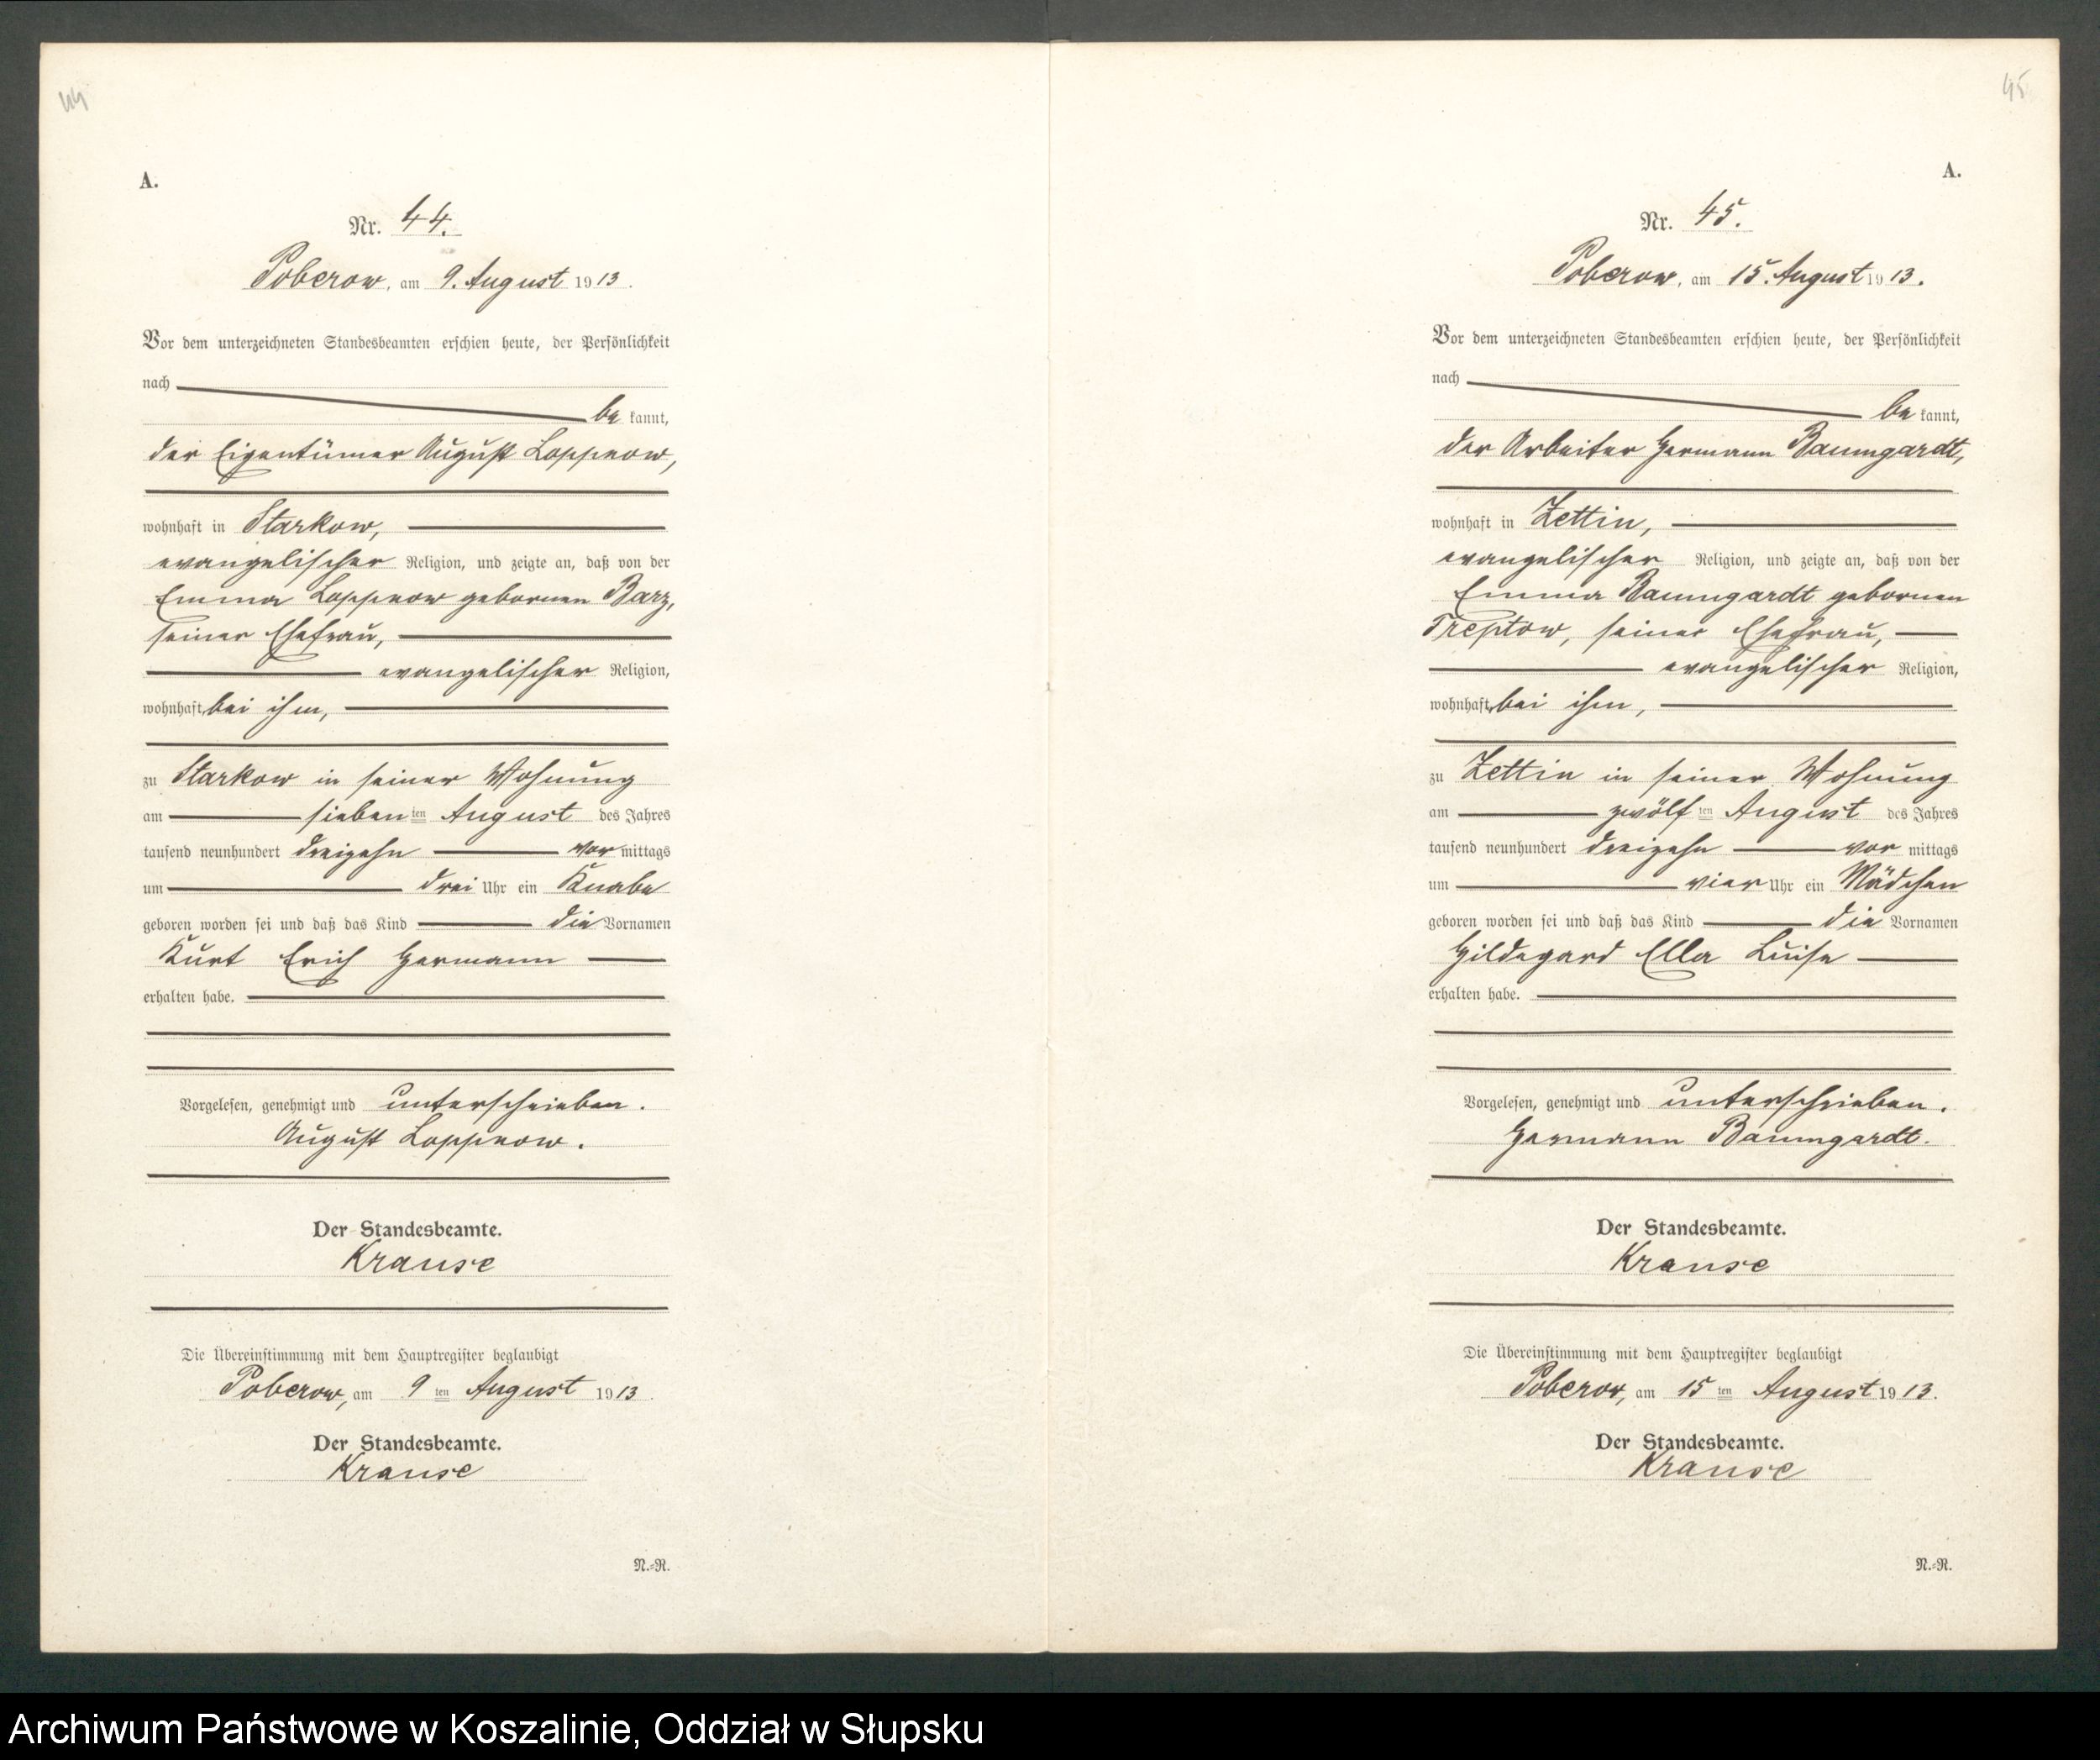 44
A.
Nr. 44.
Poberow, am 9. August 1913.
Vor dem unterzeichneten Standesbeamten erschien heute, der Persönlichkeit
nach
be kannt,
der Eigentümer August Loppnow,
wohnhaft in Starkow,
evangelischer Religion, und zeigte an, daß von der
Emma Loppnow gebornen Barz,
seiner Ehefrau,
evangelischer Religion,
wohnhaft bei ihm,
zu Starkow in seiner Wohnung
am sieben ten August des Jahres
tausend neunhundert dreizehn vor mittags
um drei Uhr ein Knabe
geboren worden sei und daß das Kind die Vornamen
Kurt Erich Hermann
erhalten habe.
Vorgelesen, genehmigt und unterschrieben.
August Loppnow.
Der Standesbeamte.
Krause
Die Übereinstimmung mit dem Hauptregister beglaubigt
Poberow, am 9 ten August 1913.
Der Standesbeamte.
Krause
N.=R.
45
A.
Nr. 45.
Poberow, am 15. August 1913.
Vor dem unterzeichneten Standesbeamten erschien heute, der Persönlichkeit
nach
be kannt,
der Arbeiter Hermann Baumgardt,
wohnhaft in Zettin,
evangelischer Religion, und zeigte an, daß von der
Emma Baumgardt gebornen
Treptow, seiner Ehefrau,
evangelischer Religion,
wohnhaft bei ihm,
zu Zettin in seiner Wohnung
am zwölf ten August des Jahres
tausend neunhundert dreizehn vor mittags
um vier Uhr ein Mädchen
geboren worden sei und daß das Kind die Vornamen
Hildegard Ella Luise
erhalten habe.
Vorgelesen, genehmigt und unterschrieben.
Hermann Baumgardt.
Der Standesbeamte.
Krause
Die Übereinstimmung mit dem Hauptregister beglaubigt
Poberow, am 15 ten August 1913.
Der Standesbeamte.
Krause
N.=R.
Archiwum Państwowe w Koszalinie, Oddział w Słupsku